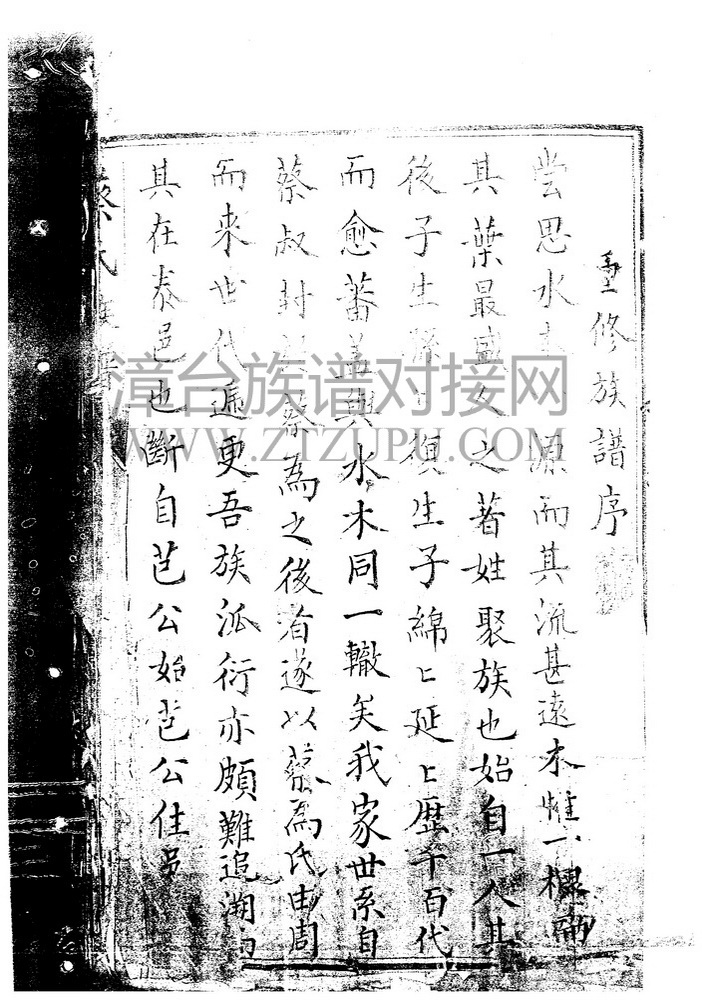 重修族譜序
嘗思水 源而其流甚遠木惟一根而
其葉最盛久之著姓聚族也始自一人其
後子生孫孫復生子綿ヒ延ヒ歷千百代
而愈蕃蓋與水木同一轍矣我家世系自
蔡叔封 蔡為之後者遂以蔡為氏由周
而來世代遞更吾族派衍亦頗難追溯
其在泰邑也斷自芑公始芑公住
蔡氏族譜
漳台族谱对接网
WWW.ZTZUPU.COM